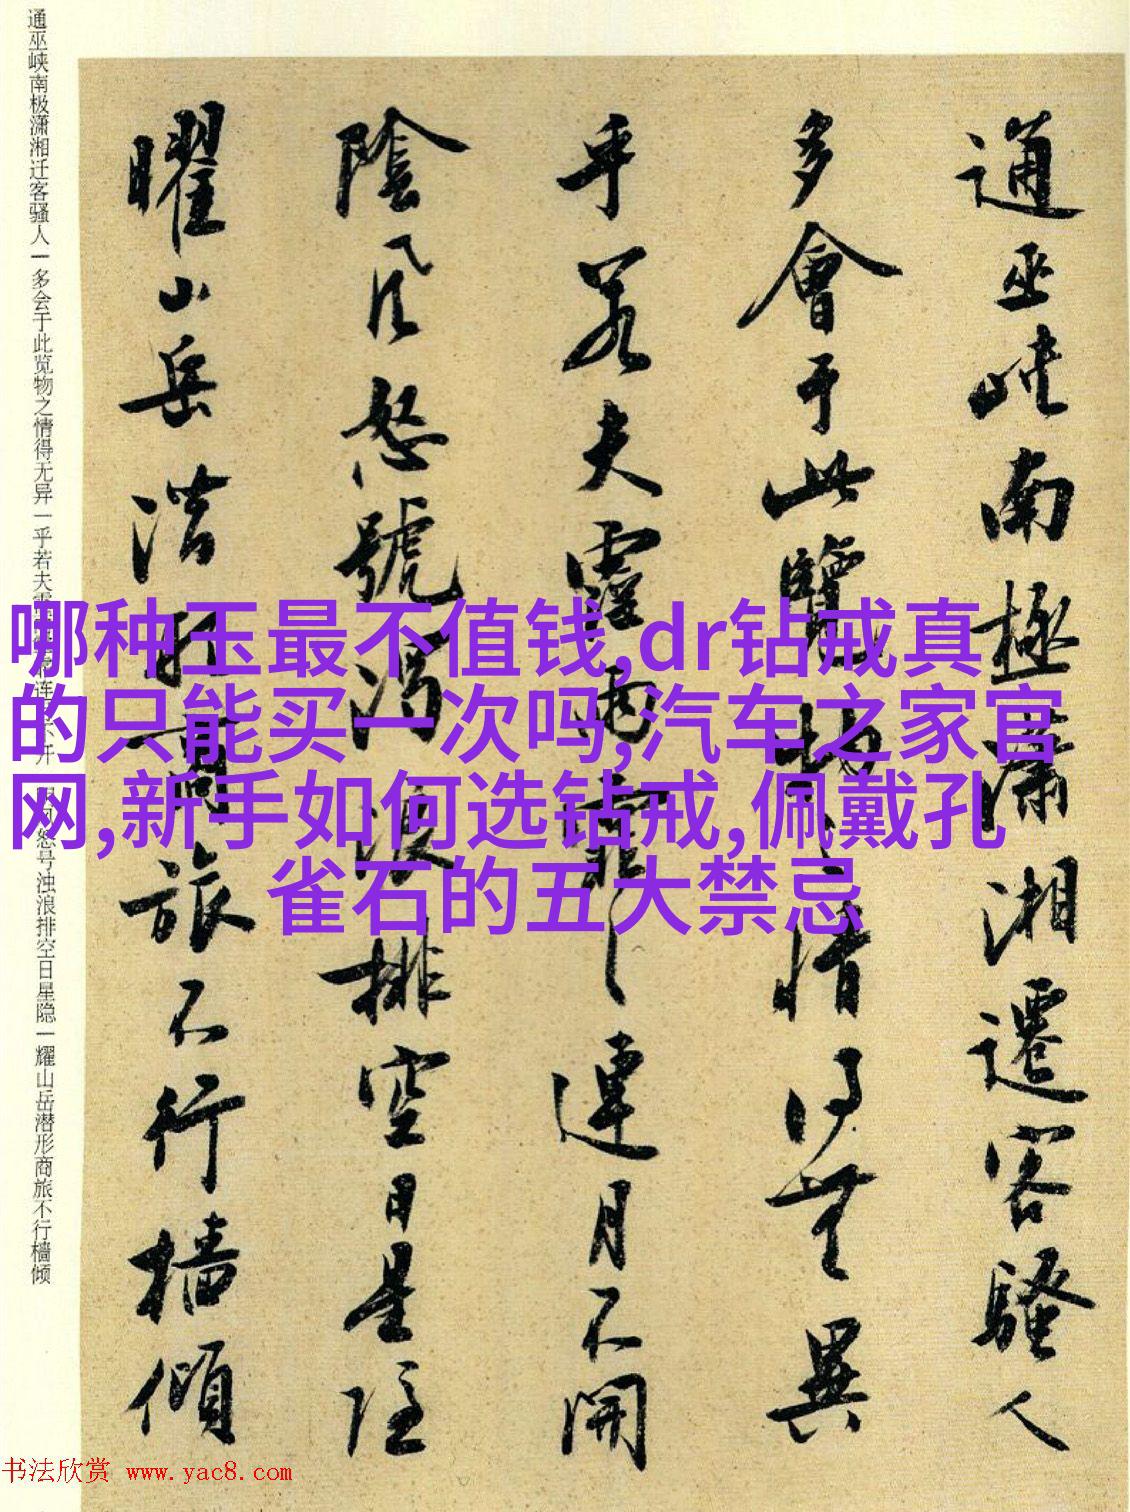 通巫峽南極瀟湘遷客騷人
多會于此覽物之情得無異
乎若夫霪雨霏連月不開
陰風怒號濁浪排空日星隱
曜山岳潛形商旅不行檣傾
通巫峡南极潇湘迁客骚人一多会于此览物之情得无异一乎若夫连开怒号浊浪排空日星隐一耀山岳潜形商旅不行樯倾
哪种玉最不值钱,dr钻戒真
的只能买一次吗,汽车之家官
网,新手如何选钻戒,佩戴孔
雀石的五大禁忌
书法欣赏 www.yac8.com